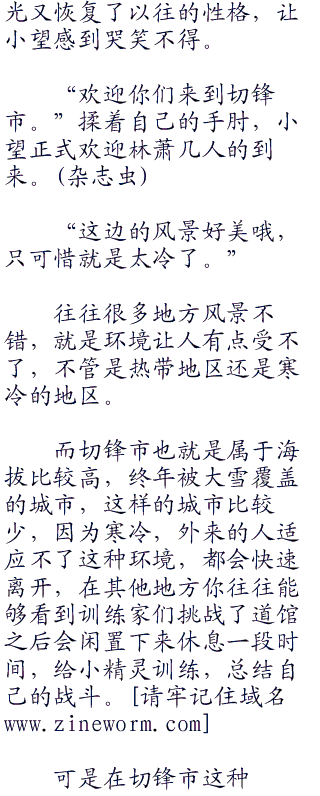 光又恢复了以往的性格，让
小望感到哭笑不得。
“欢迎你们来到切锋
市。”揉着自己的手肘，小
望正式欢迎林萧几人的到
来。(杂志虫)
“这边的风景好美哦，
只可惜就是太冷了。”
往往很多地方风景不
错，就是环境让人有点受不
了，不管是热带地区还是寒
冷的地区。
而切锋市也就是属于海
拔比较高，终年被大雪覆盖
的城市，这样的城市比较
少，因为寒冷，外来的人适
应不了这种环境，都会快速
离开，在其他地方你往往能
够看到训练家们挑战了道馆
之后会闲置下来休息一段时
间，给小精灵训练，总结自
己的战斗。[请牢记住域名
www.zineworm.com]
可是在切锋市这种